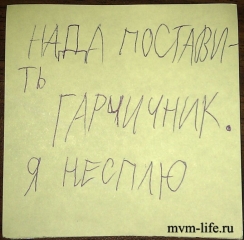 НАДА ПОСТАВИ-
ТЬ
ГАРЧИЧНИК.
Я НЕСПЛЮ
mvm-life.ru